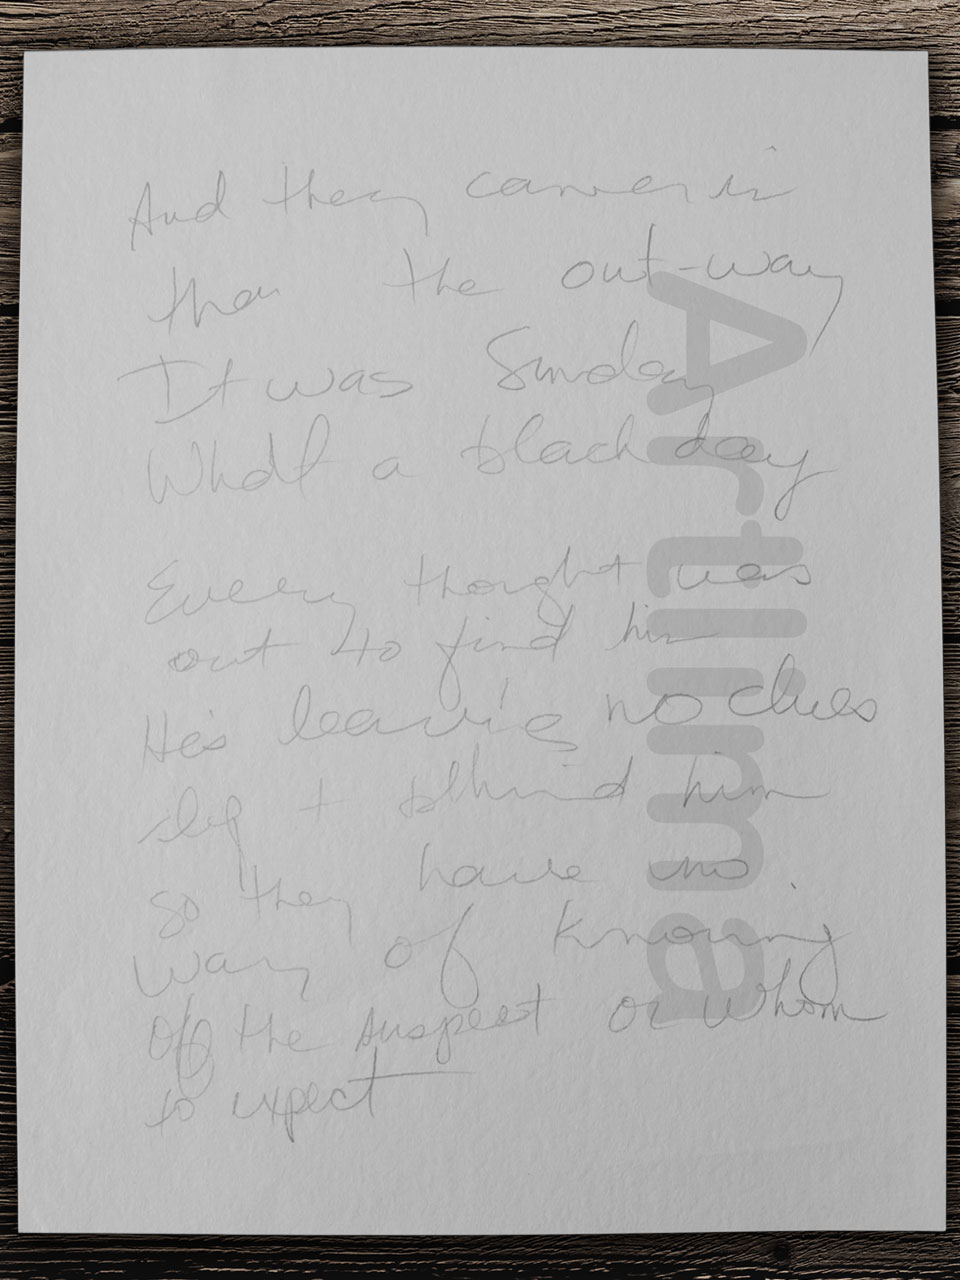 And they came in
than the out-way
It was Sunday
What a black day
Every thought was
out to find him
He's leaving no clues
behind him
so they have no
way of knowing
of the suspect or whom
to expect
Artlima